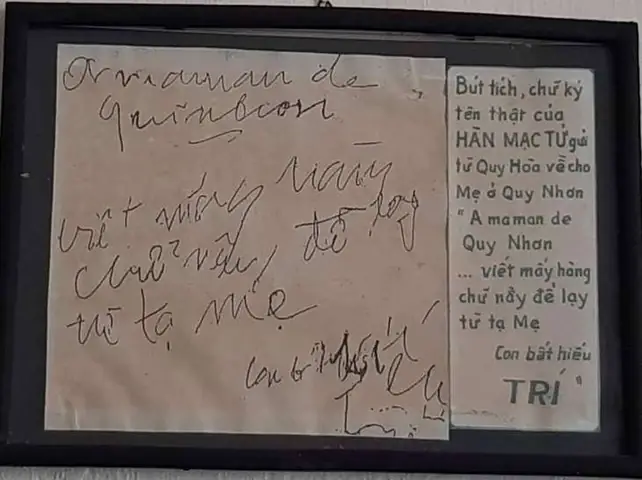 A maman de
Quinhon
viết mấy hàng
chữ nầy để lạy
từ tạ Mẹ
con bất hiếu
Trí
Bút tích, chữ ký
tên thật của
HÀN MẠC TỬ gửi
từ Quy Hòa về cho
Mẹ ở Quy Nhơn
"A maman de
Quy Nhơn
... viết mấy hàng
chữ nầy để lạy
từ tạ Mẹ
Con bất hiếu
TRÍ"